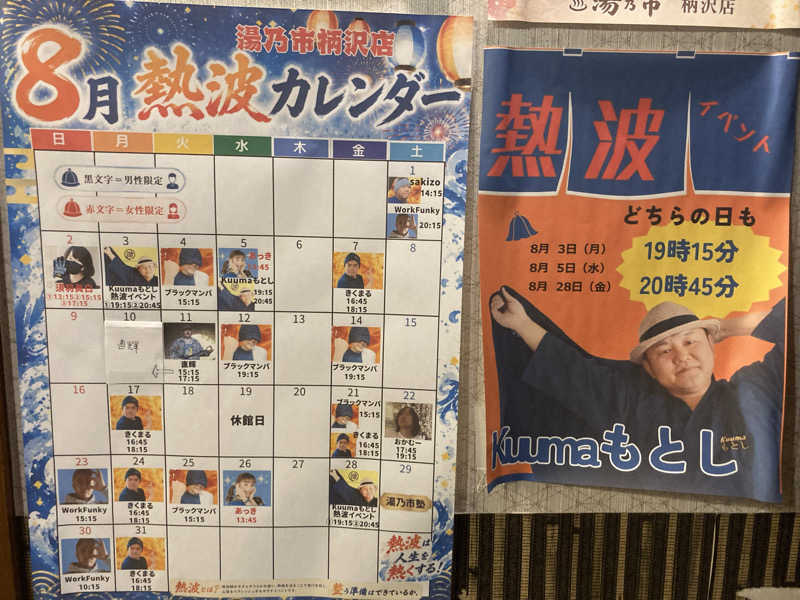 湯乃市柄沢店
8月 熱波カレンダー
日 月 火 水 木 金 土
黒文字=男性限定
赤文字=女性限定
1
sakizo
14:15
WorkFunky
20:15
2
①13:15②15:15
③17:15
3
Kuumaもとし
熱波イベント
①19:15②20:45
4
ブラックマンバ
15:15
5
あっき
Kuumaもとし
19:15
20:45
6
7
きくまる
16:45
18:15
8
9
10
直輝
11
直輝
15:15
17:15
12
ブラックマンバ
19:15
13
14
ブラックマンバ
19:15
15
16
17
きくまる
16:45
18:15
18
19
休館日
20
21
ブラックマンバ
15:15
きくまる
16:45
18:15
22
おかむー
17:45
19:15
23
WorkFunky
15:15
24
きくまる
16:45
18:15
25
ブラックマンバ
15:15
26
あっき
13:45
27
28
Kuumaもとし
熱波イベント
①19:15②20:45
29
湯乃市塾
30
WorkFunky
10:15
31
きくまる
16:45
18:15
熱波は
人生を
熱くする!
熱波とは?
整う準備はできているか。
湯乃市 柄沢店
熱波イベント
どちらの日も
8月 3日(月)
8月 5日(水)
8月 28日(金)
19時15分
20時45分
Kuumaもとし
Kuuma
もとし